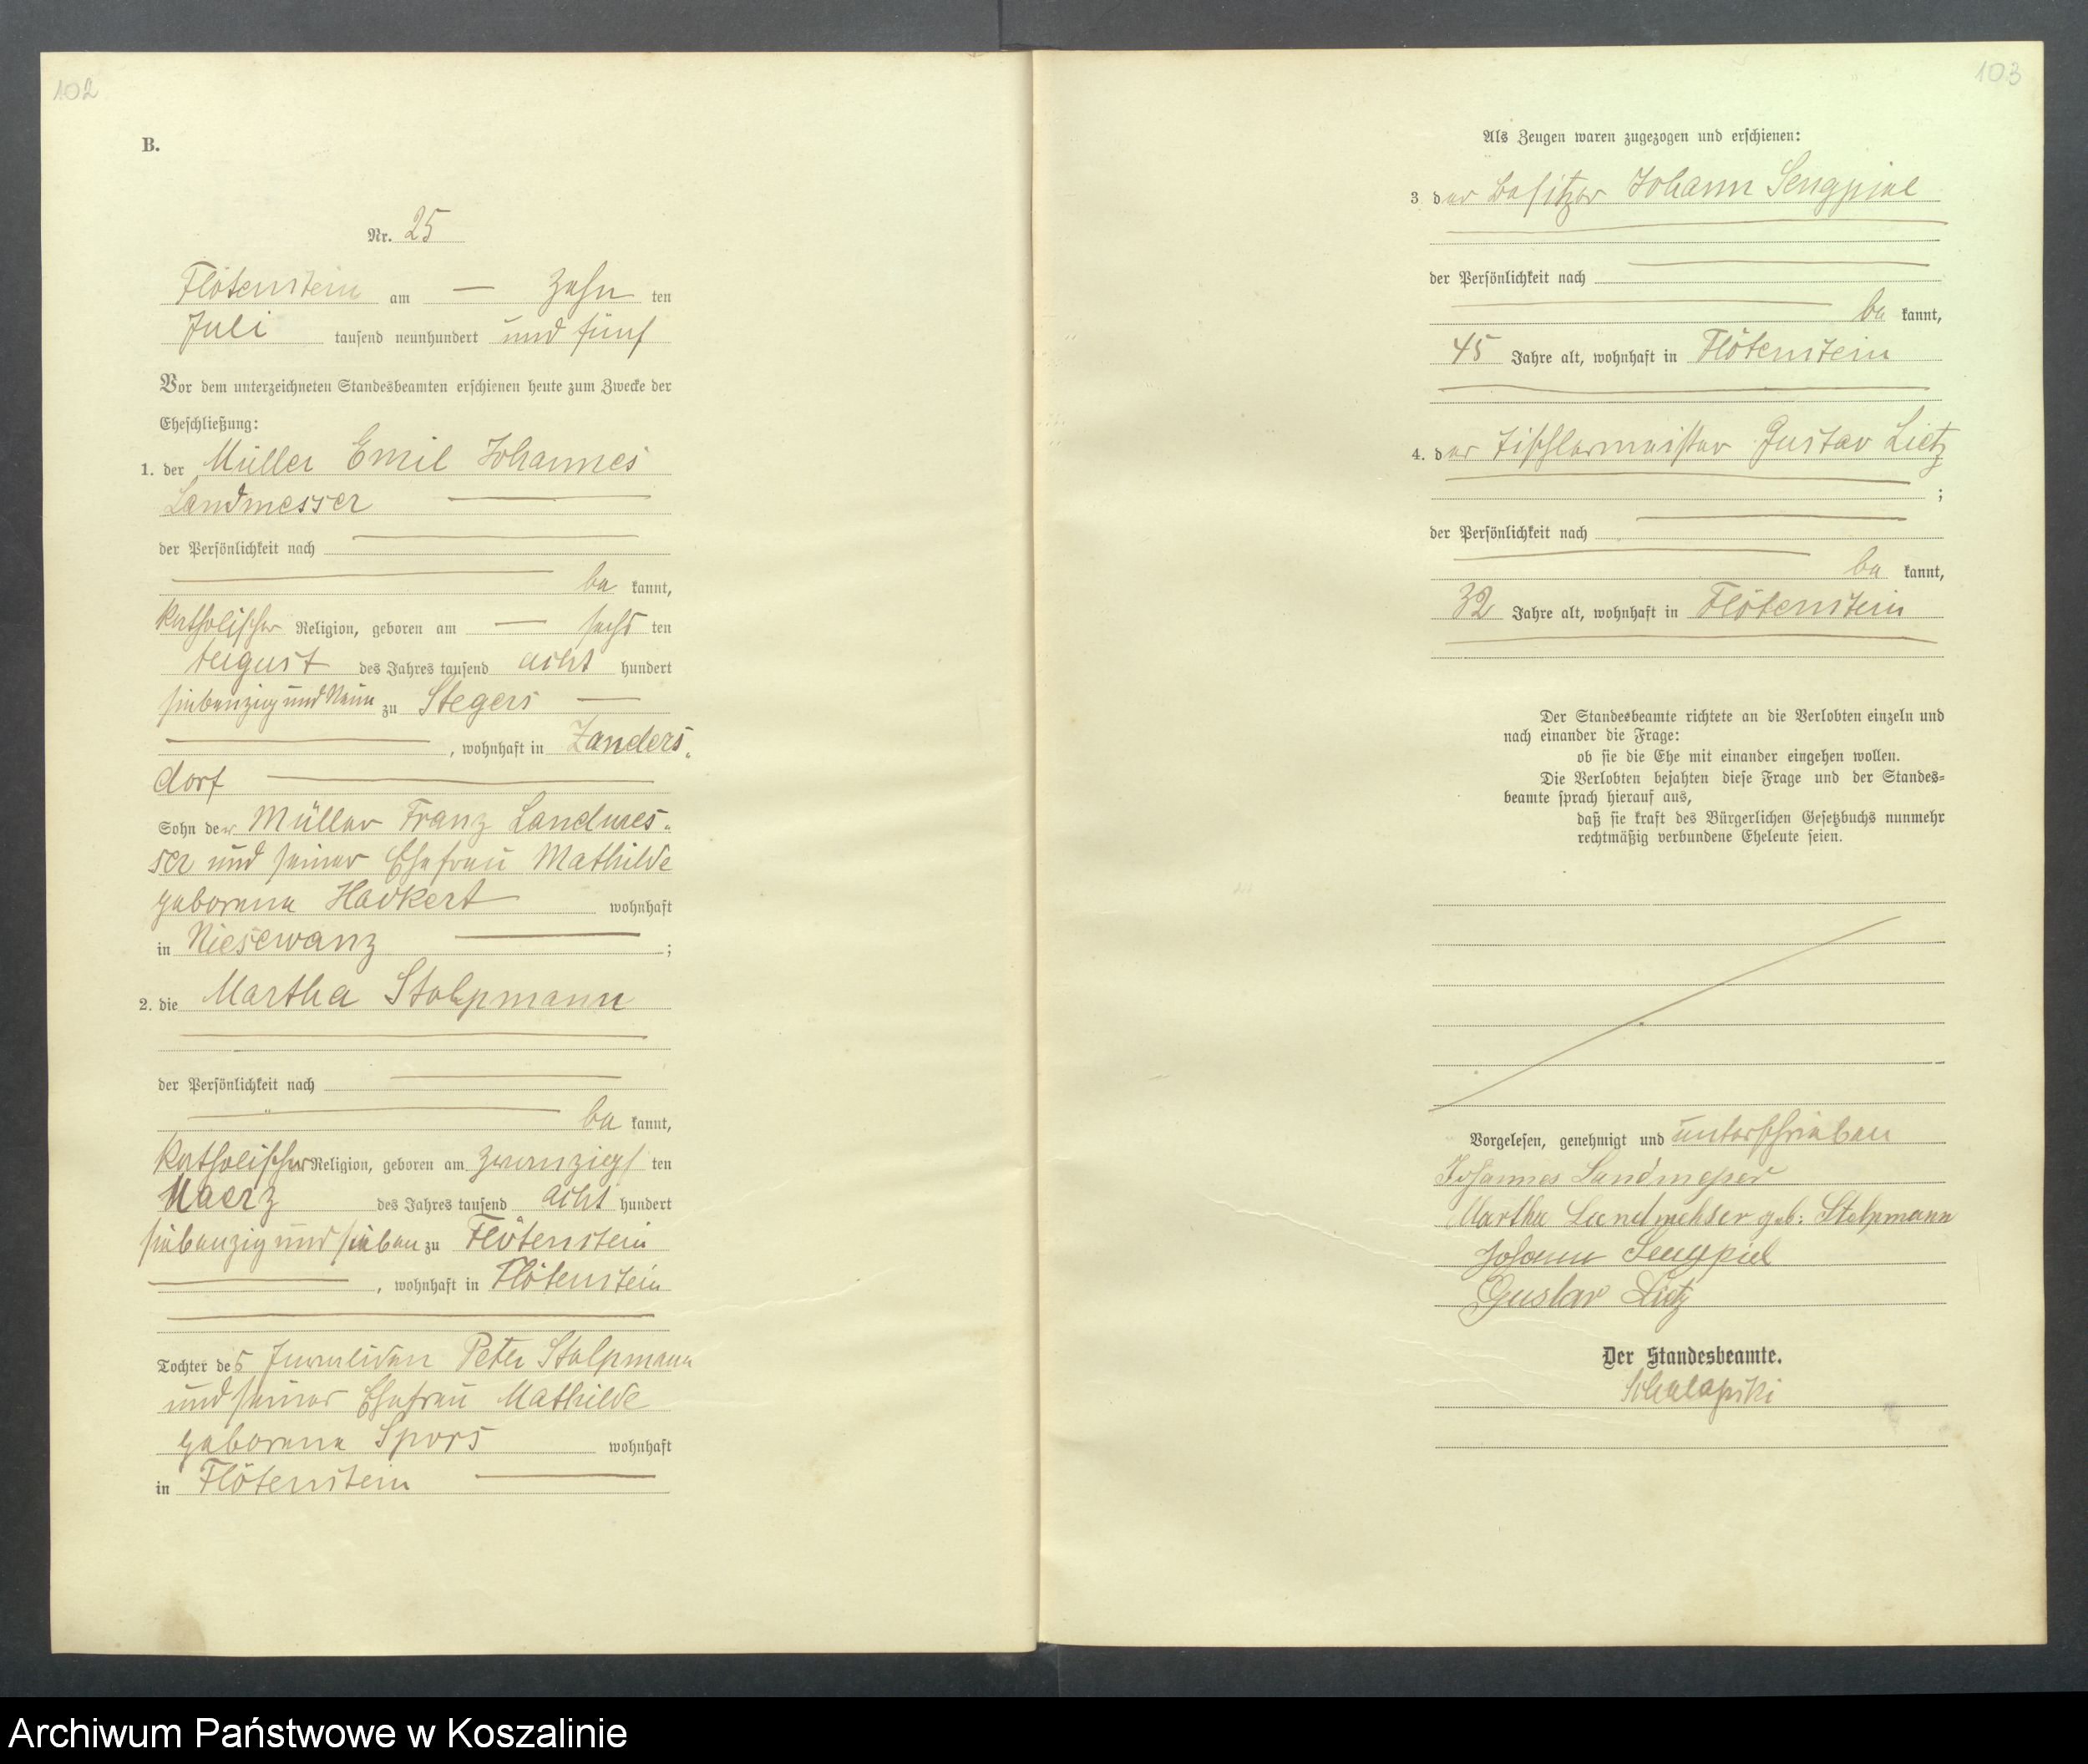 102
B.
Nr. 25
Flötenstein am — zehn ten
Juli tausend neunhundert und fünf
Vor dem unterzeichneten Standesbeamten erschienen heute zum Zwecke der
Eheschließung:
1. der Müller Emil Johannes
Landmesser
der Persönlichkeit nach
be kannt,
katholischer Religion, geboren am — sechs ten
August des Jahres tausend acht hundert
siebenzig und neun zu Stegers
, wohnhaft in Zanders-
dorf
Sohn der Müller Franz Landmes-
ser und seiner Ehefrau Mathilde
geborene Hackert wohnhaft
in Niesewanz ;
2. die Martha Stolpmann
der Persönlichkeit nach
be kannt,
katholischer Religion, geboren am zwanzigs ten
Maerz des Jahres tausend acht hundert
siebenzig und sieben zu Flötenstein
, wohnhaft in Flötenstein
Tochter des Invaliden Peter Stolpmann
und seiner Ehefrau Mathilde
geborene Spors wohnhaft
in Flötenstein
103
Als Zeugen waren zugezogen und erschienen:
3. der Besitzer Johann Sengpiel
der Persönlichkeit nach
be kannt,
45 Jahre alt, wohnhaft in Flötenstein
4. der Tischlermeister Gustav Lietz
;
der Persönlichkeit nach
be kannt,
32 Jahre alt, wohnhaft in Flötenstein
Der Standesbeamte richtete an die Verlobten einzeln und
nach einander die Frage:
ob sie die Ehe mit einander eingehen wollen.
Die Verlobten bejahten diese Frage und der Standes-
beamte sprach hierauf aus,
daß sie kraft des Bürgerlichen Gesetzbuchs nunmehr
rechtmäßig verbundene Eheleute seien.
Vorgelesen, genehmigt und unterschrieben
Johannes Landmesser
Martha Landmehser geb: Stolpmann
Johann Sengpiel
Gustav Lietz
Der Standesbeamte.
Archiwum Państwowe w Koszalinie